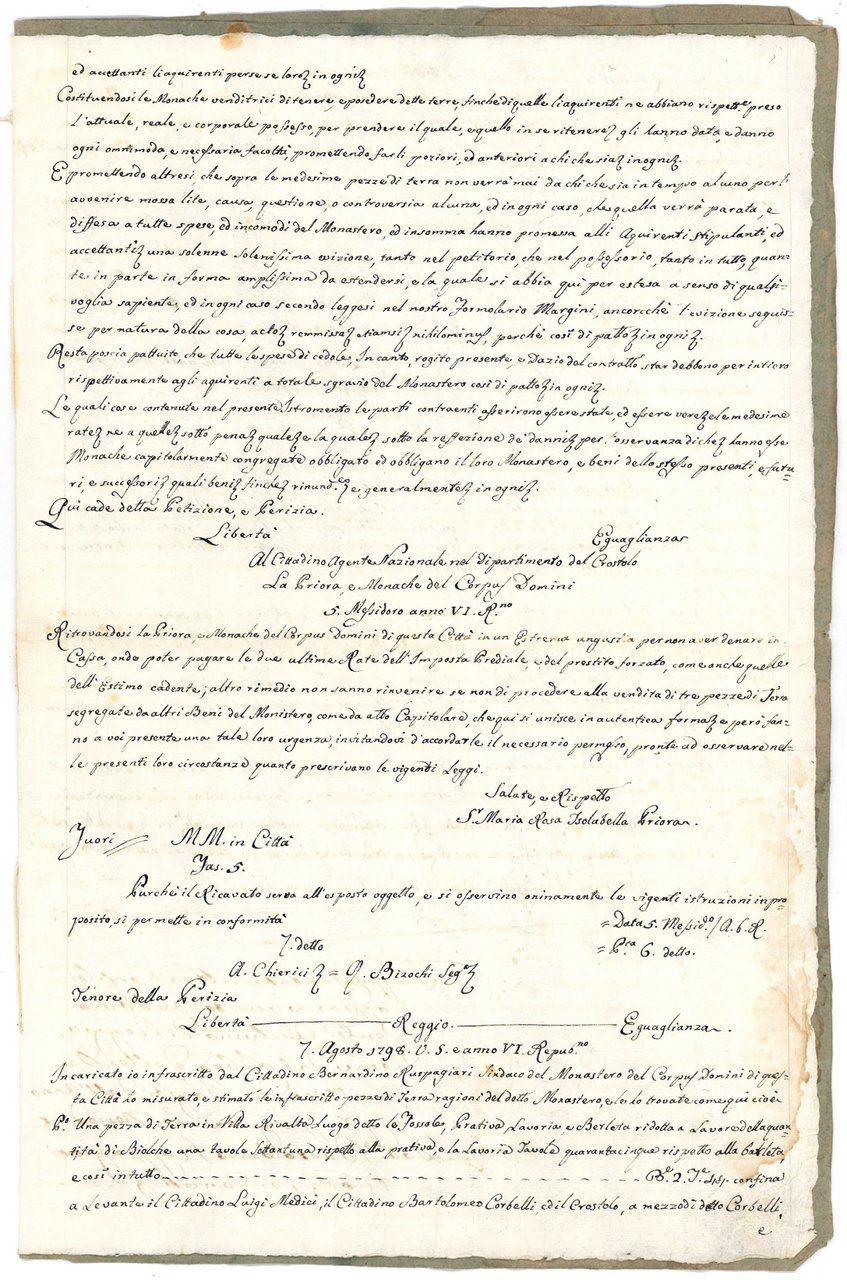 ed accettanti li aquirenti per se se loroz in ogniz
Costituendosi le Monache venditrici di tenere, e posedere dette terre, finche di quelle li aquirenti ne abbiano rispett.e preso
l'attuale, reale, e corporale possesso, per prendere il quale, e quello in se ritenerez gli hanno data, e danno
ogni omnimoda, e necessaria facoltà, promettendo farli poziori, ed anteriori a chi che siaz in ogniz.
E promettendo altresi, che sopra le medesime pezze di terra non verrà mai da chi che sia in tempo alcuno per l'
avvenire mossa lite, causa, questione, o controversia alcuna, ed in ogni caso, che quella verrà parata, e
diffesa a tutte spese, ed incomodi del Monastero, ed insomma hanno promessa alli Aquirenti stipulanti, ed
accettantiz una solenne solenissima evizione, tanto nel petitorio, che nel possessorio, tanto in tutto, quan-
te in parte in forma amplissima da estendersi, e la quale si abbia qui per estesa a senso di qualsi-
voglia sapiente, ed in ogni caso secondo leggesi nel nostro Formolario Margini, ancorcchè l'evizione seguis-
se per natura della cosa, actoz remmissaz etiamsiz nihilominus, perchè così di pattoz in ogniz.
Resta poscia pattuito, che tutte le spese di cedole, Incanto, rogito presente, e Dazio del contratto star debbono per intiero
rispettivamente agli aquirenti a totale sgravio del Monastero così di pattoz in ogniz.
Le quali cose contenute nel presente Istromento le parti contraenti asserirono essere state, ed essere verez e le medesime
ratez ne a quellez sotto penaz qualez e la qualez sotto la reffezione de' danniz per l'osservanza di chez hanno esse
Monache capitolarmente congregate obbligato ed obbligano il loro Monastero, e beni dello stesso presenti, e futu-
ri, e successoriz quali beniz finchez rinund. z e generalmentez in ogniz.
Qui cade detta Petizione, e Perizia.
Libertà Eguaglianza
Al Cittadino Agente Nazionale nel Dipartimento del Crostolo
La Priora, e Monache del Corpus Domini
5. Messidoro anno VI. R.no
Ritrovandosi la Priora, e Monache del Corpus Domini di questa Città in un Estrema angustia per non aver denare in
Cassa, onde poter pagare le due ultime Rate dell'Imposta Prediale, e del prestito forzato, come anche quelle
dell'Estimo cadente; altro rimedio non sanno rinvenire se non di procedere alla vendita di tre pezze di Terra
segregate da altri Beni del Monistero, come da atto Capitolare, che qui si unisce in autentica formaz e però fan-
no a voi presente una tale loro urgenza, invitandovi d'accordarle il necessario permesso, pronte ad osservare nel-
le presenti loro circostanze quanto prescrivano le vigenti Leggi.
Salute, e Rispetto
S.r Maria Rosa Isolabella Priora.
Fuori MM. in Città
Fas. 5.
Purchè il Ricavato serva all'esposto oggetto, e si osservino oninamente le vigenti istruzioni in pro-
posito, si permette in conformità = Data 5. Messid.o / A. 6. R.
7. detto = P.ta 6. detto.
A. Chierici z = Q. Bizochi Seg.e z
Tenore della Perizia
Libertà Reggio. Eguaglianza.
7. Agosto 1798. V. S. e anno VI Repub.no
Incaricato io infrascritto dal Cittadino Bernardino Ruspagiari Sindaco del Monastero del Corpus Domini di ques-
ta Città ho misurato, e stimato le infrascritto pezze di Terra ragioni del detto Monastero, e le ho trovate come qui cioè
P.o Una pezza di Terra in Villa Rivalta Luogo detto le Fossole, Prativa, Lavoria, e Berleta ridotta a Lavore della quan-
tità di Biolche una tavole settantuna rispetto alla prativa, e la Lavoria Tavole quarantacinque rispetto alla Barleta,
e così in tutto B.e 2. T.e 44. confina
a Levante il Cittadino Luigi Medici, il Cittadino Bartolomeo Corbelli, ed il Crostolo, a mezzodì detto Corbelli,
e